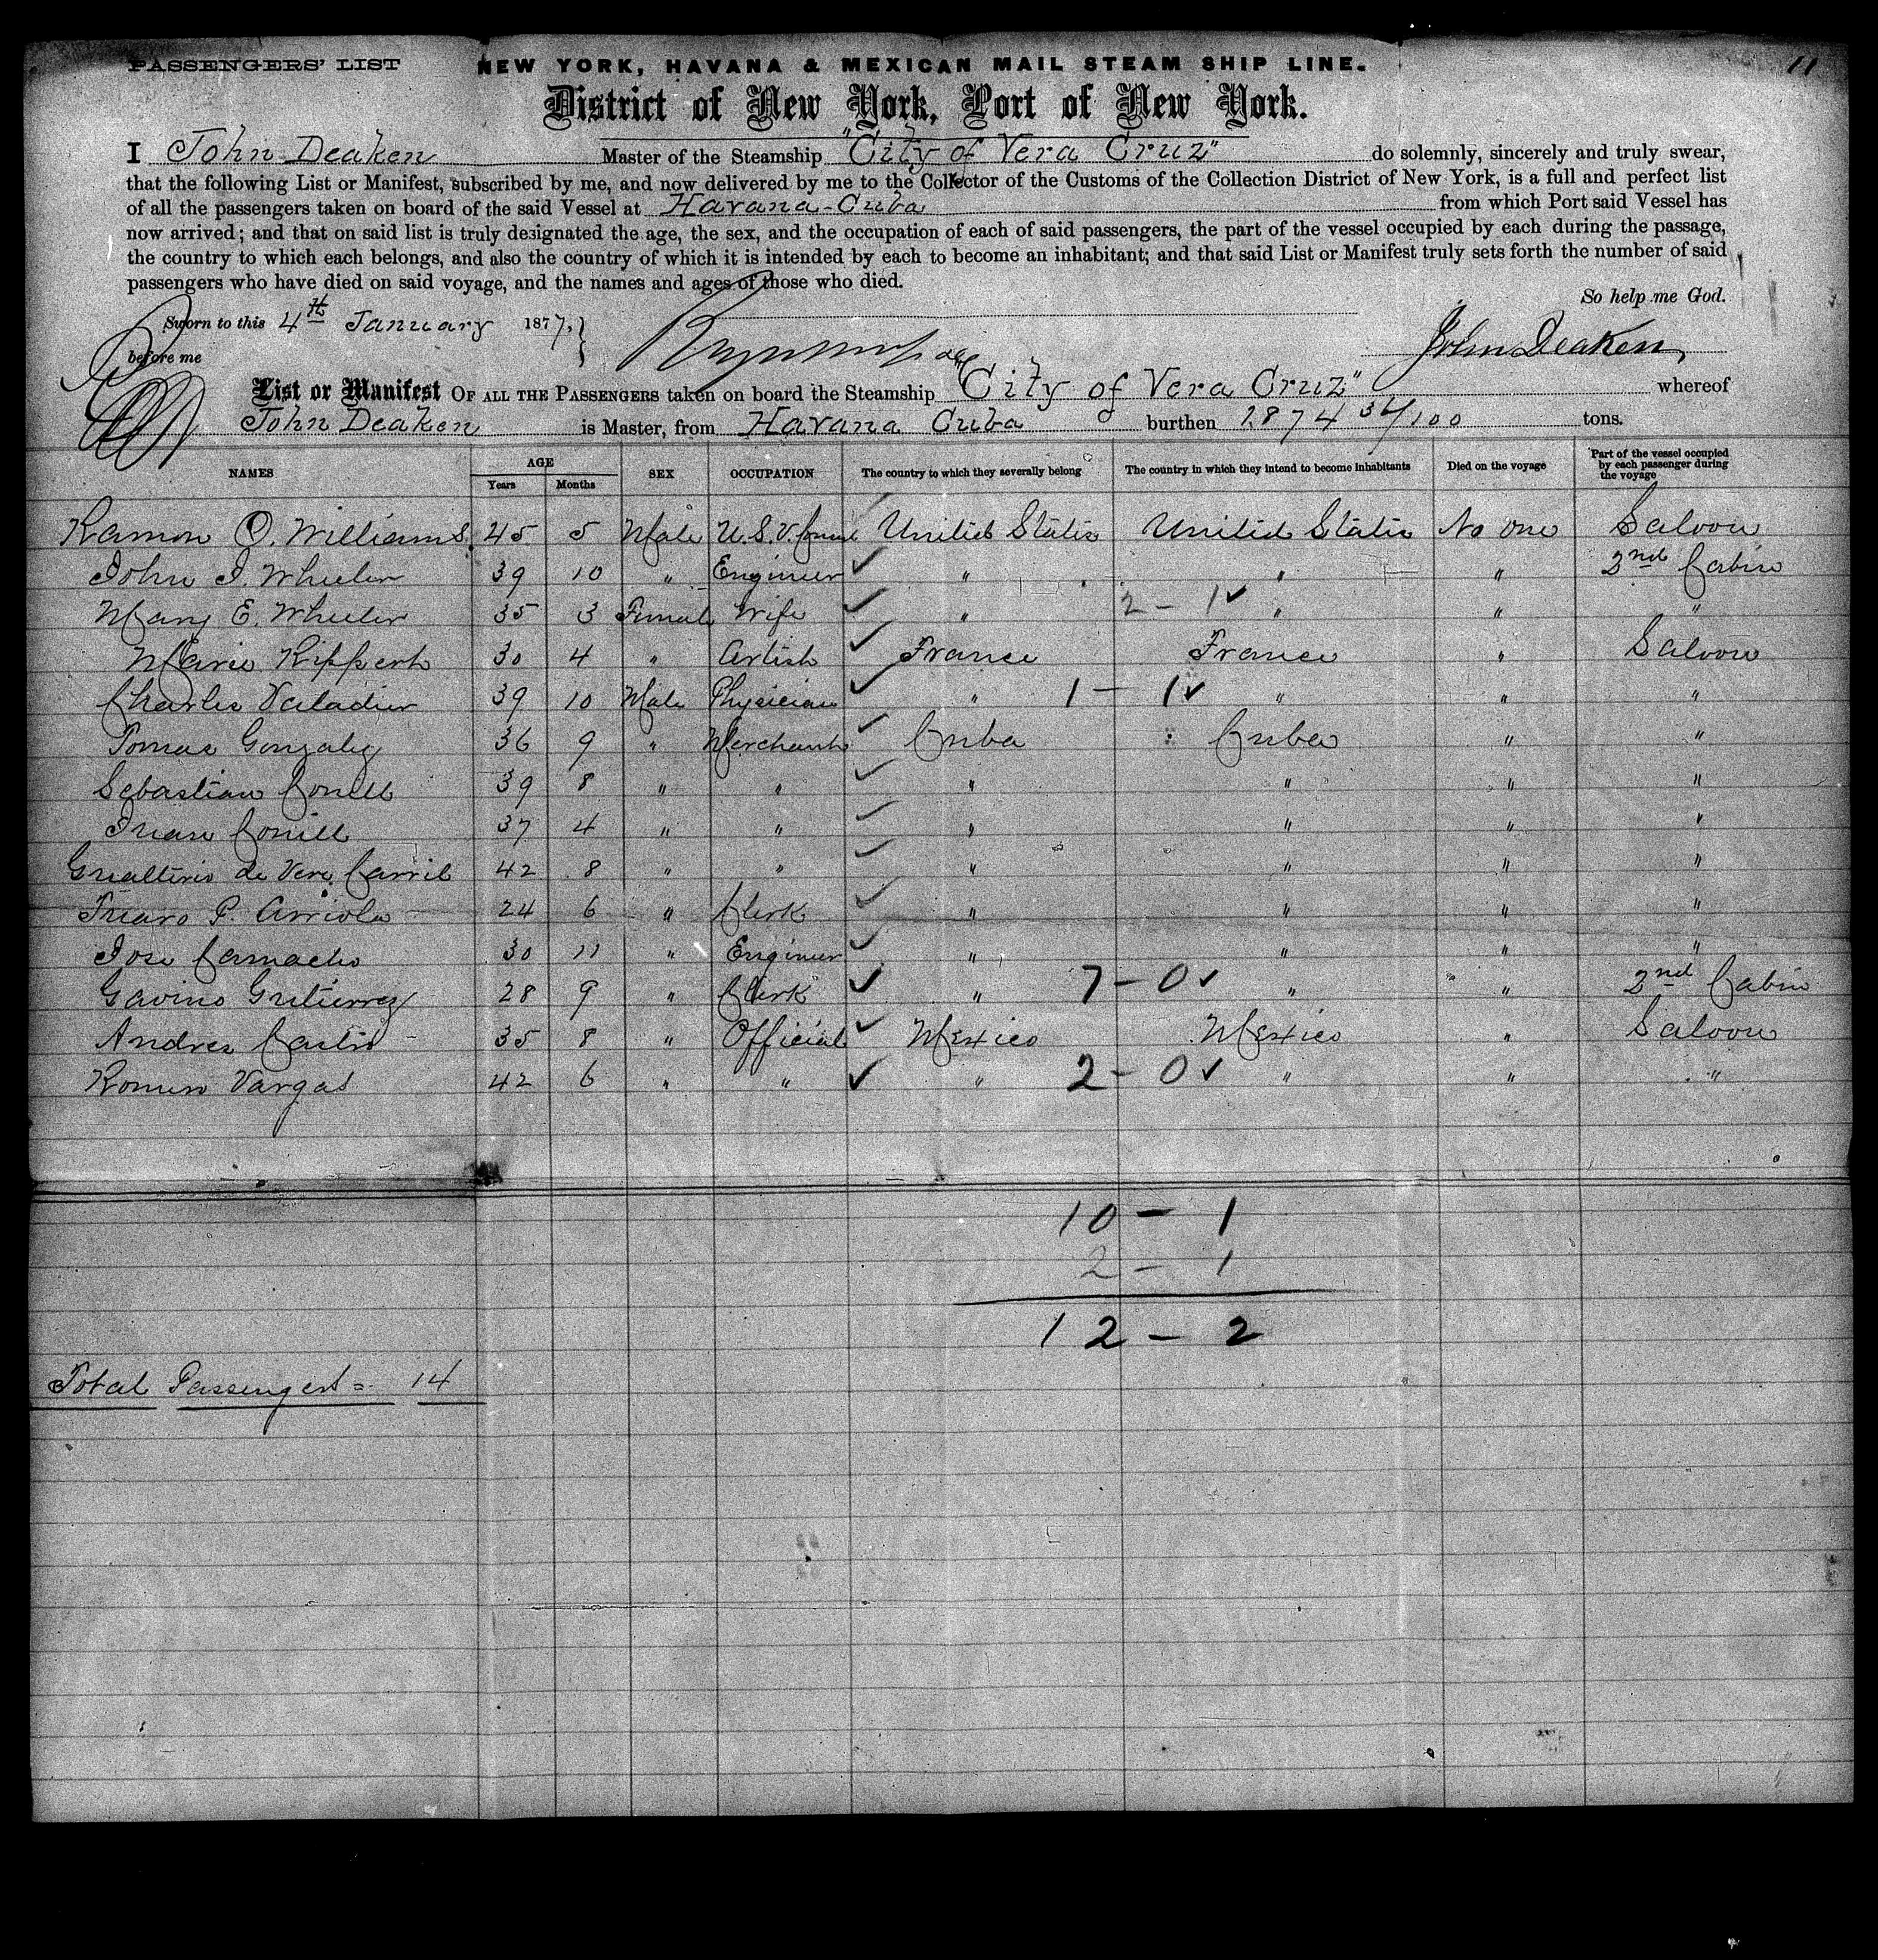 11
PASSENGERS' LIST NEW YORK, HAVANA & MEXICAN MAIL STEAM SHIP LINE.
District of New York, Port of New York.
I John Deaken Master of the Steamship "City of Vera Cruz" do solemnly, sincerely and truly swear,
that the following List or Manifest, subscribed by me, and now delivered by me to the Collector of the Customs of the Collection District of New York, is a full and perfect list
of all the passengers taken on board of the said Vessel at Havana-Cuba from which Port said Vessel has
now arrived; and that on said list is truly designated the age, the sex, and the occupation of each of said passengers, the part of the vessel occupied by each during the passage,
the country to which each belongs, and also the country of which it is intended by each to become an inhabitant; and that said List or Manifest truly sets forth the number of said
passengers who have died on said voyage, and the names and ages of those who died.
So help me God.
Sworn to this 4th January 1877,
before me
John Deaken
List or Manifest OF ALL THE PASSENGERS taken on board the Steamship "City of Vera Cruz" whereof
John Deaken is Master, from Havana Cuba burthen 2874 34/100 tons.
NAMES AGE Years Months SEX OCCUPATION The country to which they severally belong The country in which they intend to become inhabitants Died on the voyage Part of the vessel occupied by each passenger during the voyage
Ramon O. Williams 45 5 Male U.S.V. Consul United States United States No one Saloon
John I. Wheeler 39 10 " Engineer " " " 2nd Cabin
Mary E. Wheeler 35 3 Female Wife " 2 - 1 " " "
Marie Rippert 30 4 " Artist France France " Saloon
Charles Valadier 39 10 Male Physician " 1 - 1 " " "
Tomas Gonzalez 36 9 " Merchant Cuba Cuba " "
Sebastian Conill 39 8 " " " " " "
Juan Conill 37 4 " " " " " "
Gualterio de Vere Carril 42 8 " " " " " "
P. Arriola 24 6 " Clerk " " " "
Jose Camacho 30 11 " Engineer " " " "
Gavino Gutierrez 28 9 " Clerk " 7 - 0 " " 2nd Cabin
Andres Castro 35 8 " Official Mexico Mexico " Saloon
Romero Vargas 42 6 " " " 2 - 0 " " "
10 - 1
2 - 1
12 - 2
Total Passengers = 14